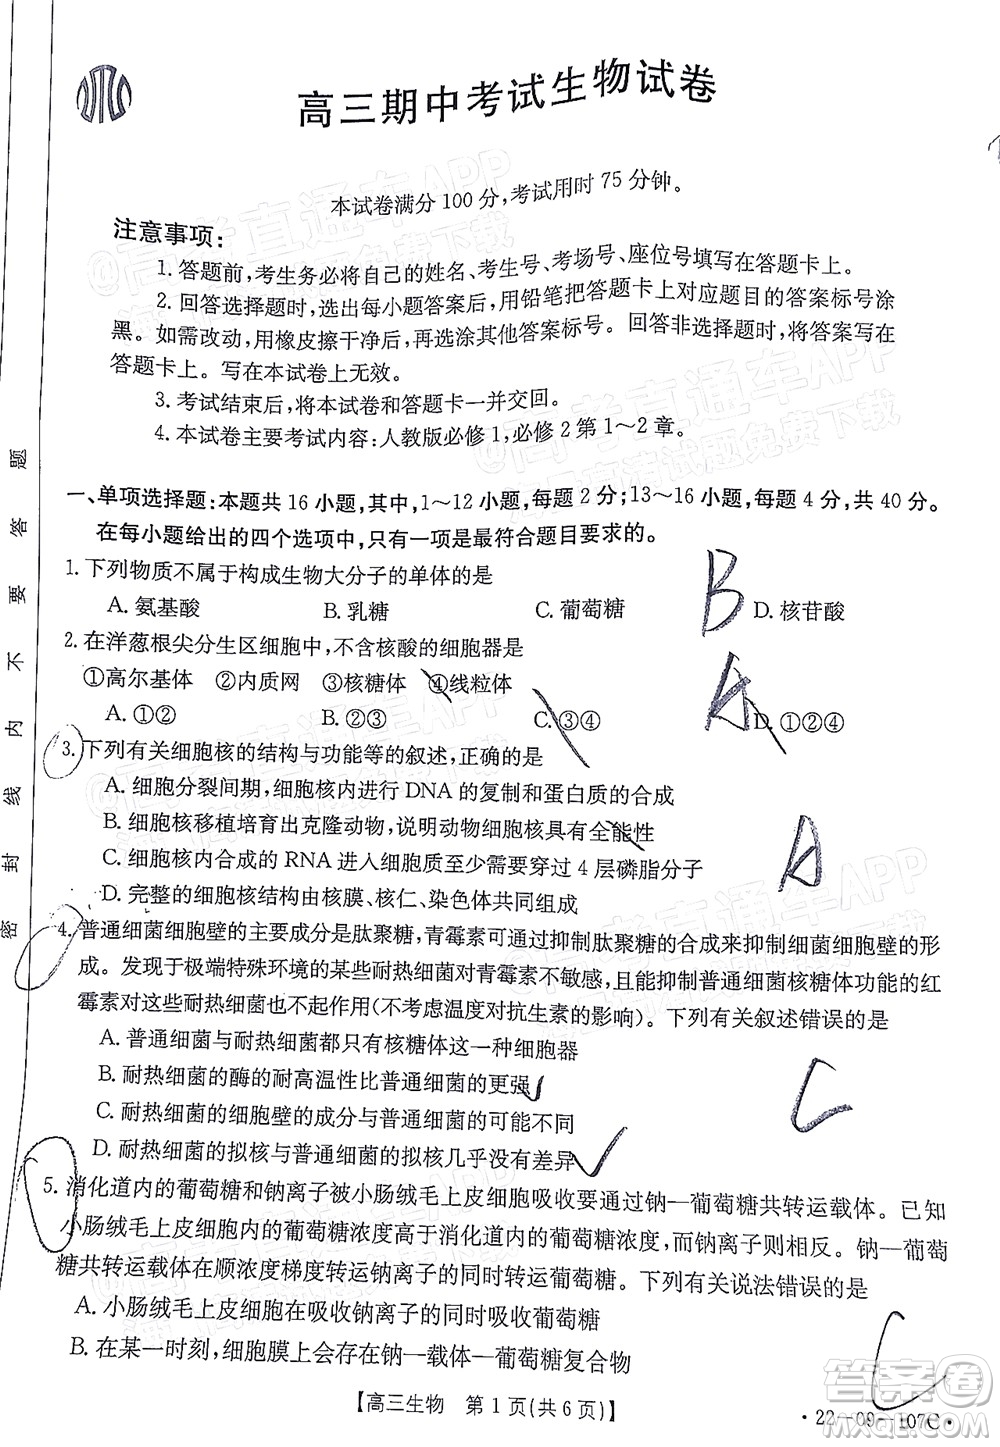 高三期中考试生物试卷
本试卷满分100分,考试用时75分钟。
注意事项:
1. 答题前,考生务必将自己的姓名、考生号、考场号、座位号填写在答题卡上。
2. 回答选择题时,选出每小题答案后,用铅笔把答题卡对应题目的答案标号涂
黑。如需改动,用橡皮擦干净后,再选涂其他答案标号。回答非选择题时,将答案写在
答题卡上。写在本试卷上无效。
3. 考试结束后,将本试卷和答题卡一并交回。
4. 本试卷主要考试内容:人教版必修1,必修2第1~2章。
一、单项选择题:本题共16小题,其中,1~12小题,每题2分;13~16小题,每题4分,共40分。
在每小题给出的四个选项中,只有一项是最符合题目要求的。
1. 下列物质不属于构成生物大分子的单体的是
A. 氨基酸 B. 乳糖 C. 葡萄糖 D. 核苷酸
B
2. 在洋葱根尖分生区细胞中,不含核酸的细胞器是
①高尔基体 ②内质网 ③核糖体 ④线粒体
A. ①② B. ②③ C. ③④ D. ①②④
A
3. 下列有关细胞核的结构与功能等的叙述,正确的是
A. 细胞分裂间期,细胞核内进行DNA的复制和蛋白质的合成
B. 细胞核移植培育出克隆动物,说明动物细胞核具有全能性
C. 细胞核内合成的RNA进入细胞质至少需要穿过4层磷脂分子
D. 完整的细胞核结构由核膜、核仁、染色体共同组成
A
4. 普通细菌细胞壁的主要成分是肽聚糖,青霉素可通过抑制肽聚糖的合成来抑制细菌细胞壁的形
成。发现于极端特殊环境的某些耐热细菌对青霉素不敏感,且能抑制普通细菌核糖体功能的红
霉素对这些耐热细菌也不起作用(不考虑温度对抗生素的影响)。下列有关叙述错误的是
A. 普通细菌与耐热细菌都只有核糖体一种细胞器
B. 耐热细菌的酶的耐高温性比普通细菌的更强
C. 耐热细菌的细胞壁的成分与普通细菌的可能不同
D. 耐热细菌的拟核与普通细菌的拟核几乎没有差异
C
5. 消化道内的葡萄糖和钠离子被小肠绒毛上皮细胞吸收要通过钠—葡萄糖共转运载体。已知
小肠绒毛上皮细胞内的葡萄糖浓度高于消化道内的葡萄糖浓度,而钠离子则相反。钠—葡萄
糖共转运载体在顺浓度梯度转运钠离子的同时转运葡萄糖。下列有关说法错误的是
A. 小肠绒毛上皮细胞在吸收钠离子的同时吸收葡萄糖
B. 在某一时刻,细胞膜上会存在钠—载体—葡萄糖复合物
C
【高三生物 第1页(共6页)】
·22-09-107C·
密 封 线 内 不 要 答 题
@高考直通车APP
海量高清试题免费下载
答案圈